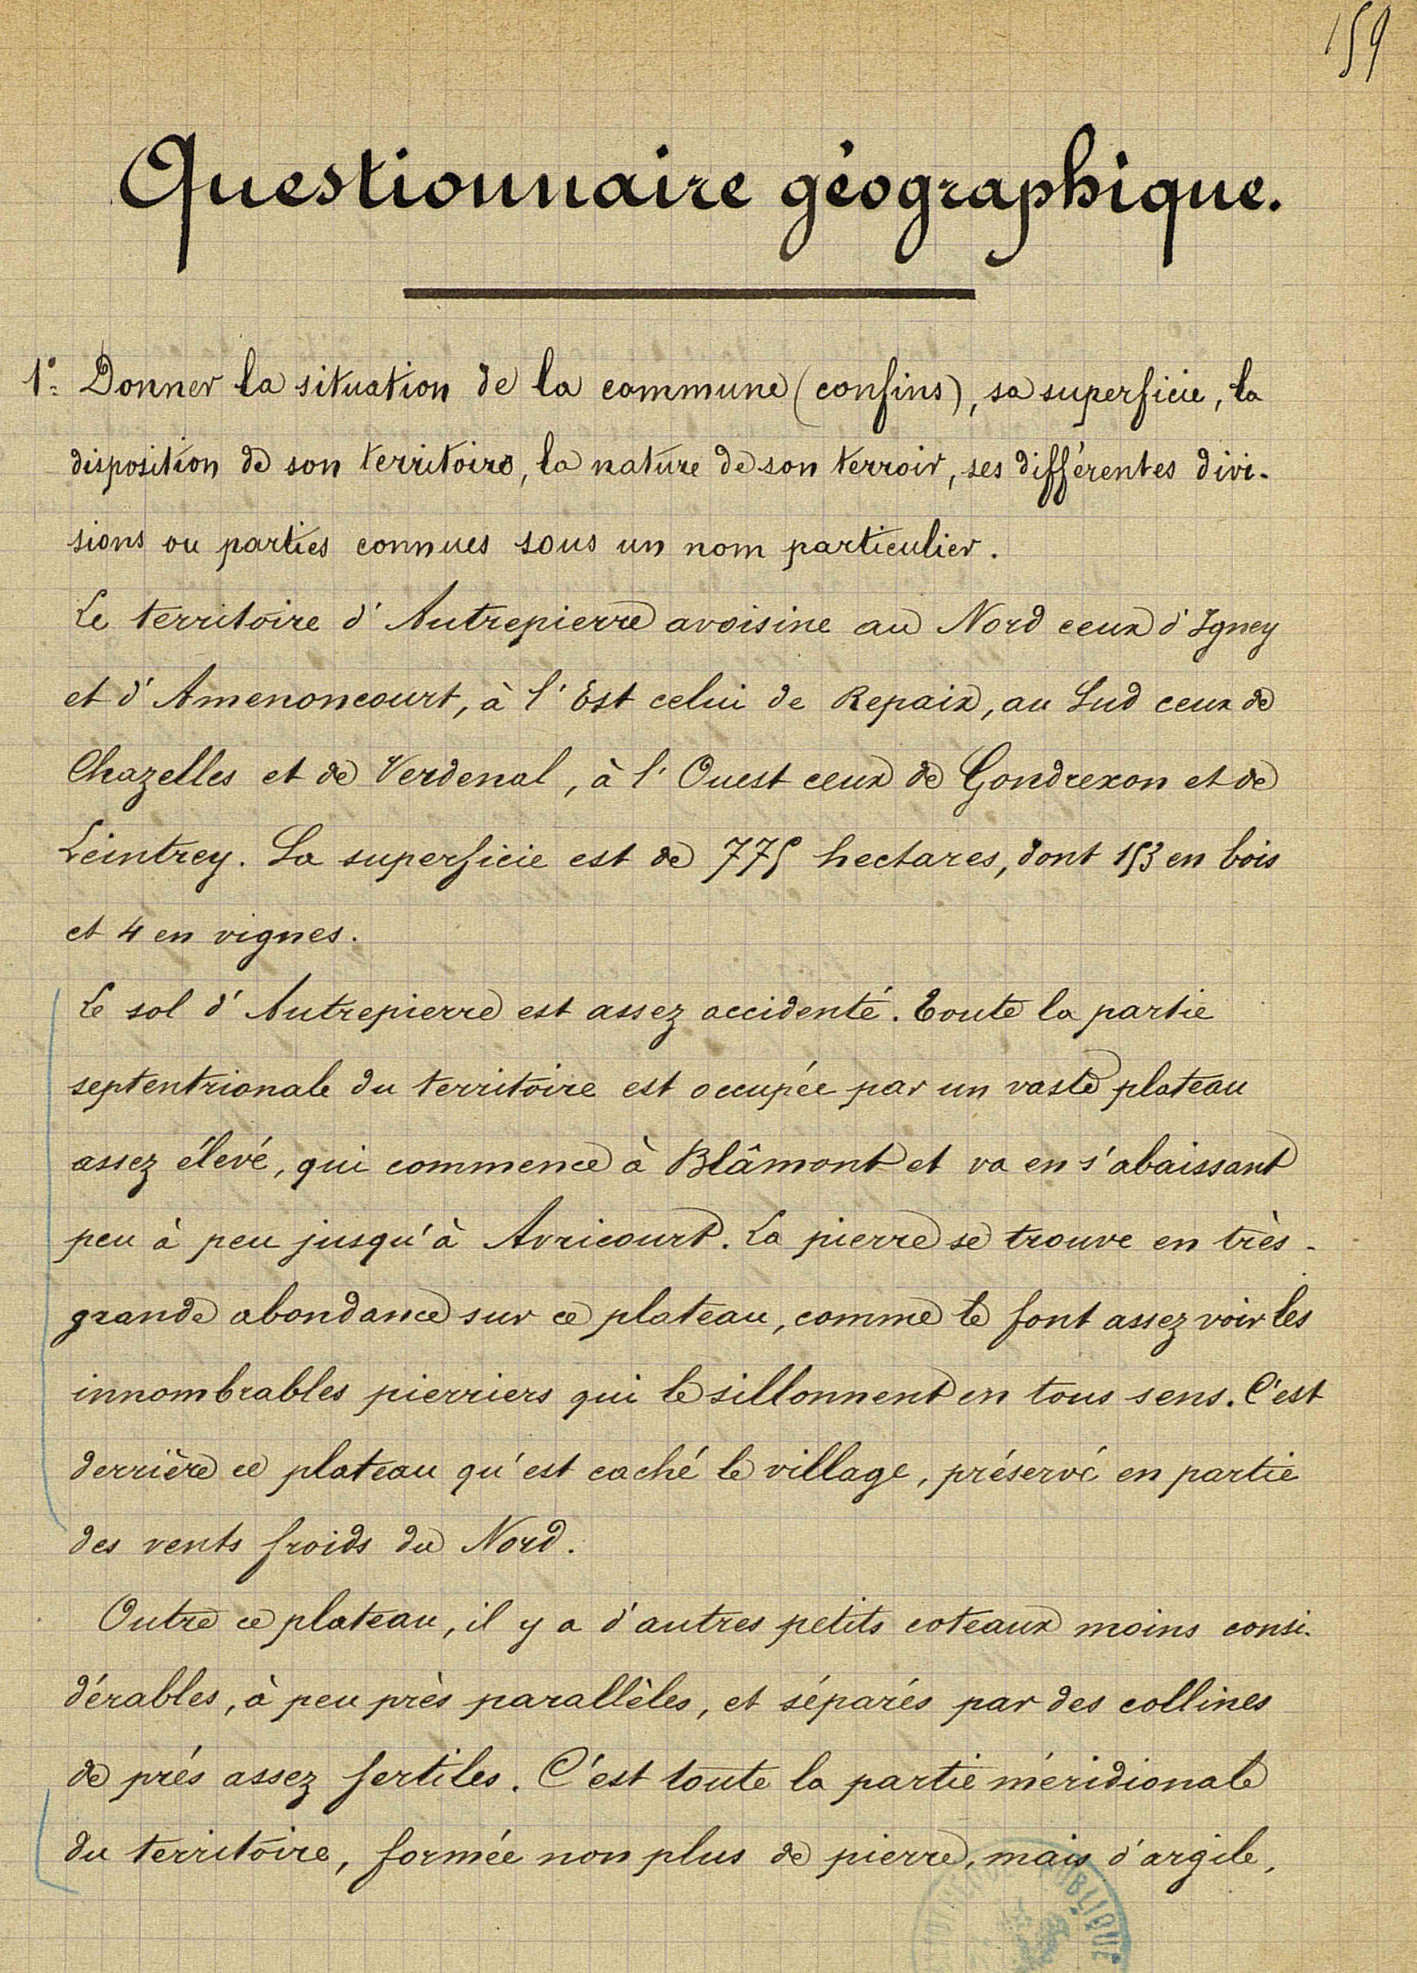 159
Questionnaire géographique.
1° Donner la situation de la commune (confins), sa superficie, la
disposition de son territoire, la nature de son terroir, ses différentes divi-
sions ou parties connues sous un nom particulier.
Le territoire d'Autrepierre avoisine au Nord ceux d'Igney
et d'Amenoncourt, à l'Est celui de Repaix, au Sud ceux de
Chazelles et de Verdenal, à l'Ouest ceux de Gondrexon et de
Leintrey. La superficie est de 775 hectares, dont 153 en bois
et 4 en vignes.
Le sol d'Autrepierre est assez accidenté. Toute la partie
septentrionale du territoire est occupée par un vaste plateau
assez élevé, qui commence à Blâmont et va en s'abaissant
peu à peu jusqu'à Avricourt. La pierre se trouve en très-
grande abondance sur ce plateau, comme le font assez voir les
innombrables pierriers qui le sillonnent en tous sens. C'est
derrière ce plateau qu'est caché le village, préservé en partie
des vents froids du Nord.
Outre ce plateau, il y a d'autres petits coteaux moins consi-
dérables, à peu près parallèles, et séparés par des collines
de prés assez fertiles. C'est toute la partie méridionale
du territoire, formée non plus de pierre, mais d'argile,
PUBLIQUE